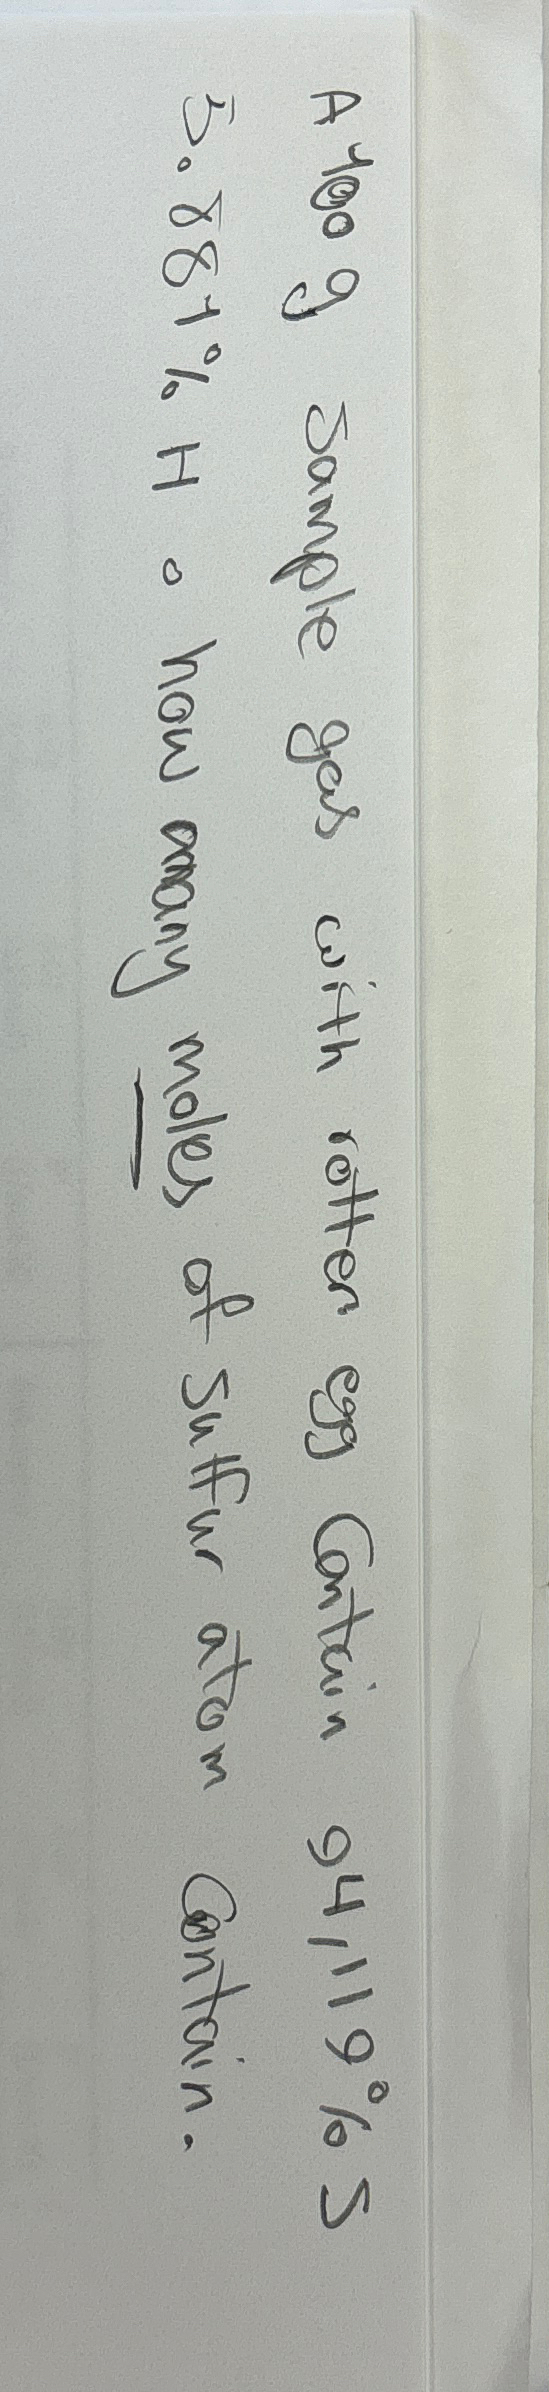 A 100 g sample gas with rotten egg Contain 94,119% S
5.881% H . how many moles of sulfur atom Contain.